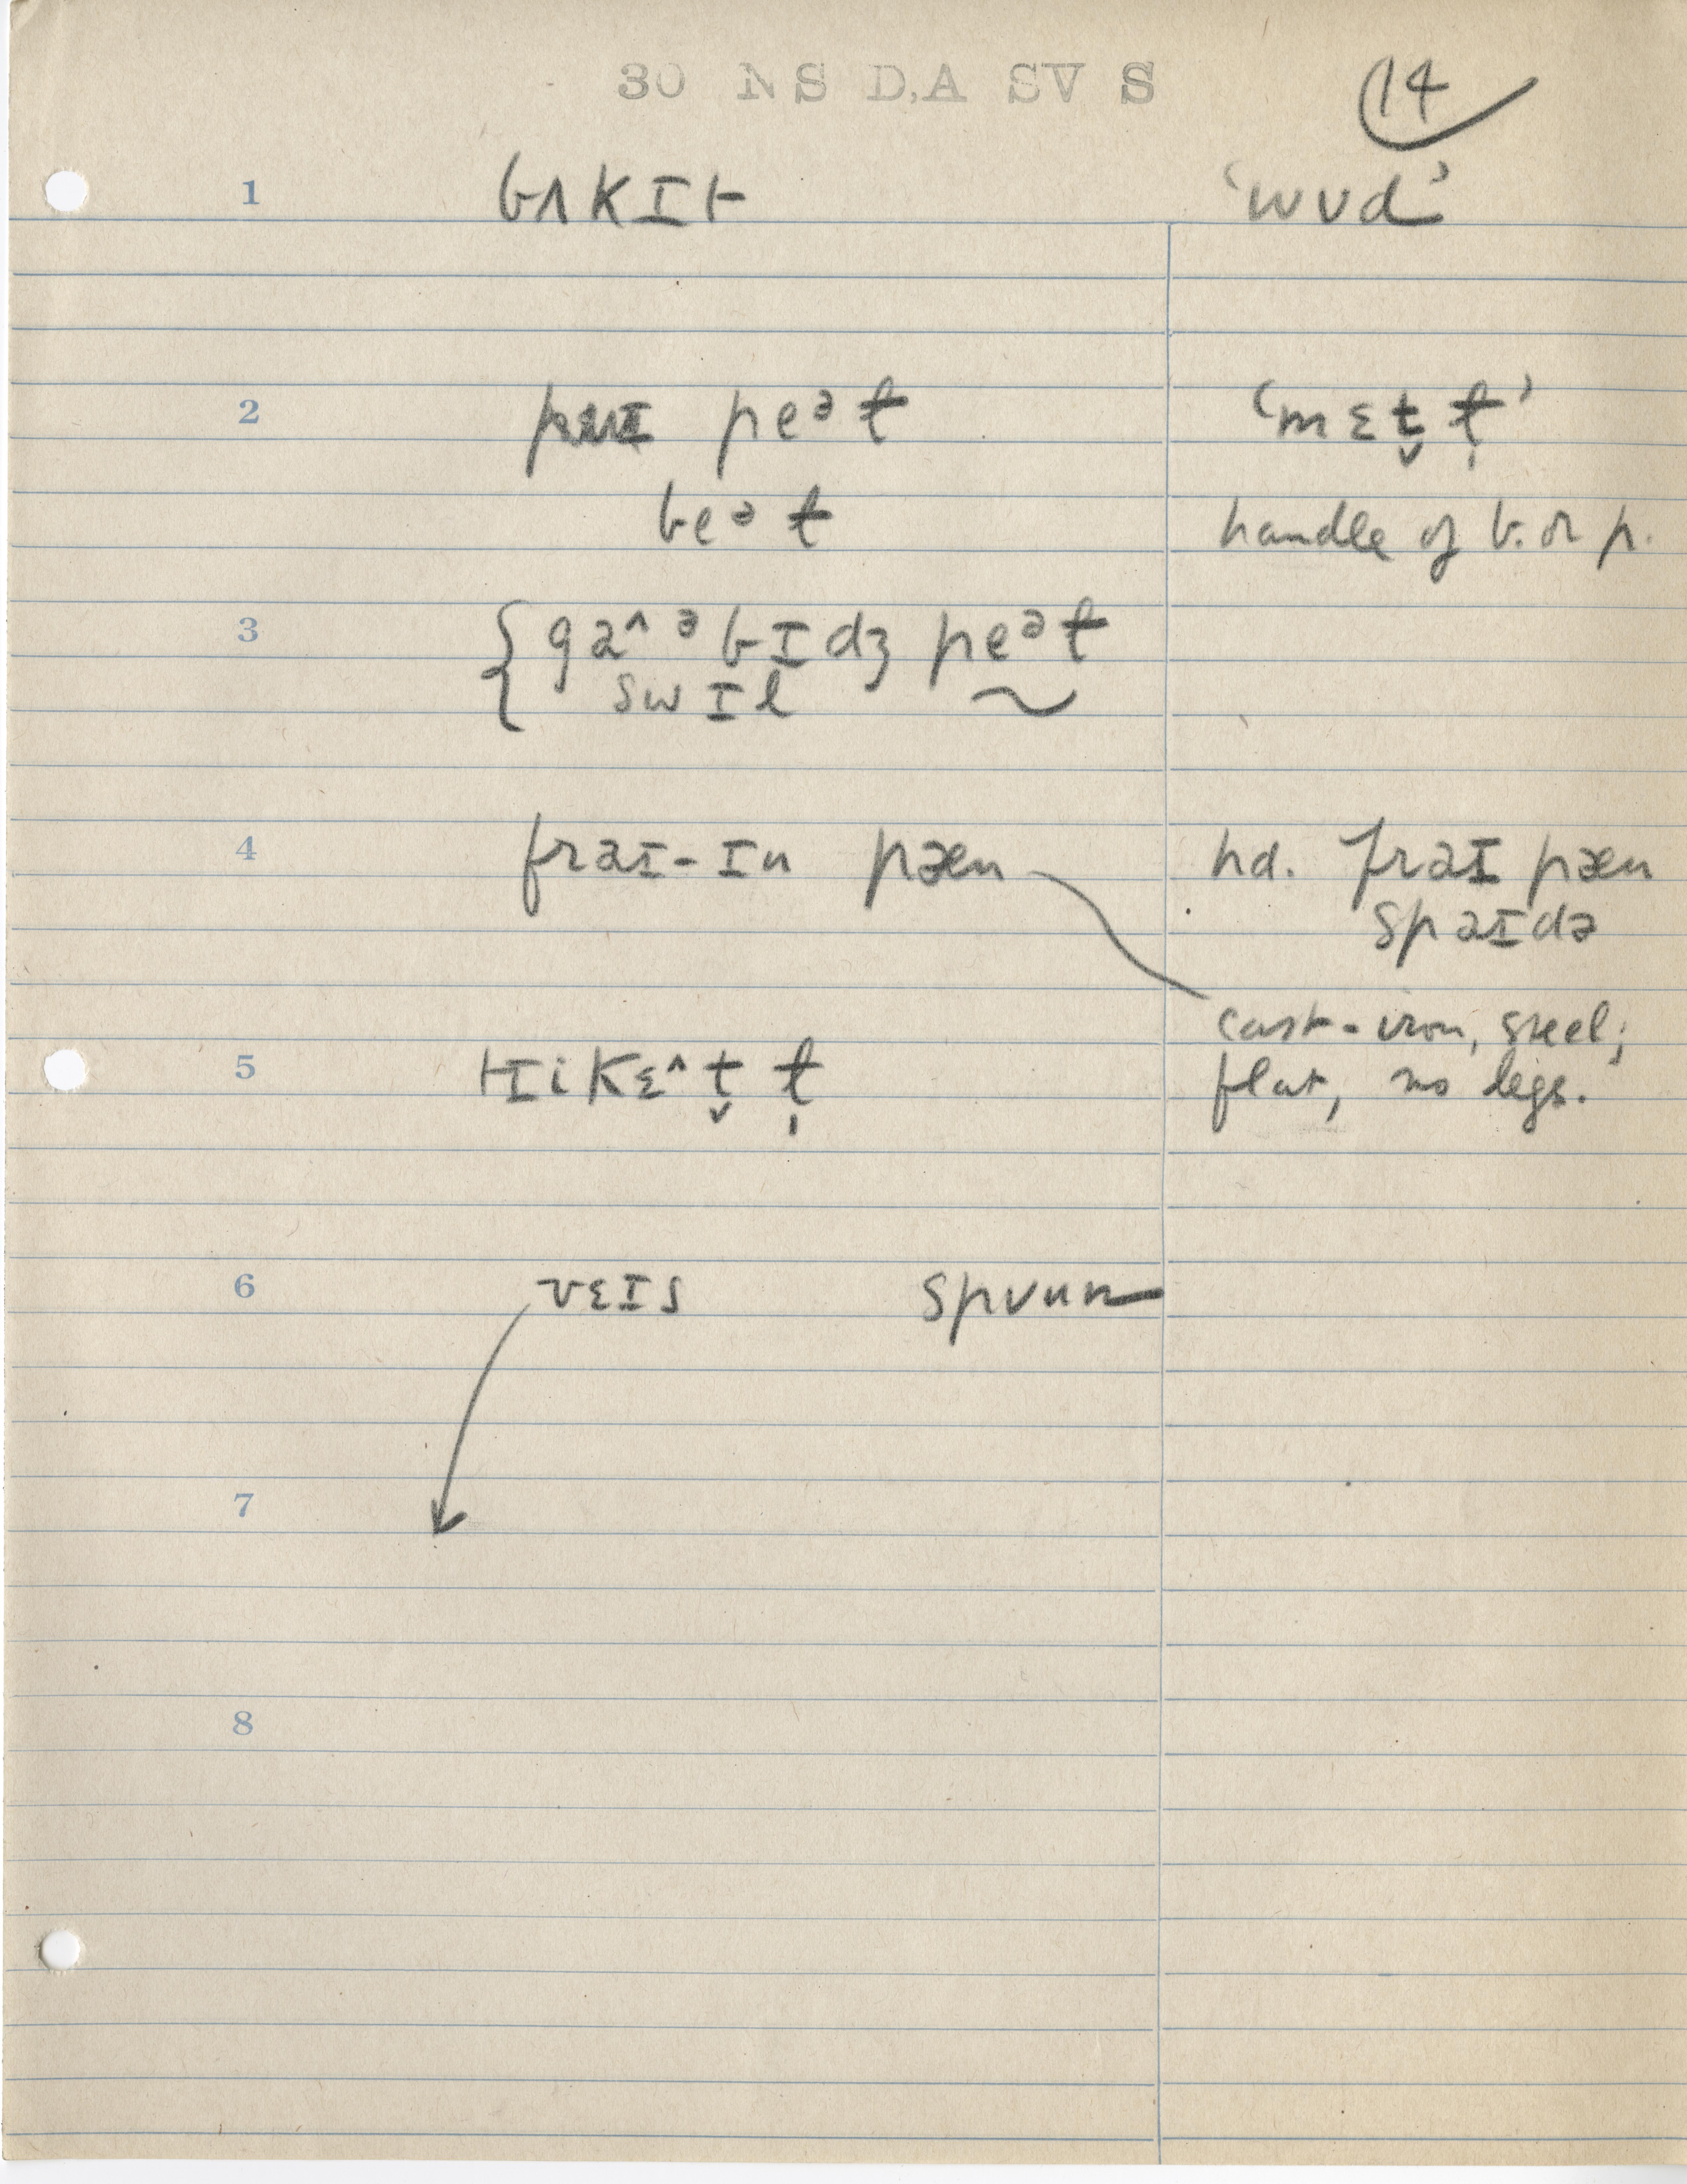 30 NS D.A SV S
14
1 bʌkɪt 'wʊd'
2 peəɫ 'mɛt̬ɫ̩'
beəɫ handle of b. or p.
3 { ga^əbɪdʒ peəɫ
swɪl ~
4 fraɪ-ɪn pæn hd. fraɪ pæn
spaɪdə
cast-iron, steel;
5 tɪikɛ^t̬ɫ̩ flat, no legs.
6 vɛɪs spʊun
7
8